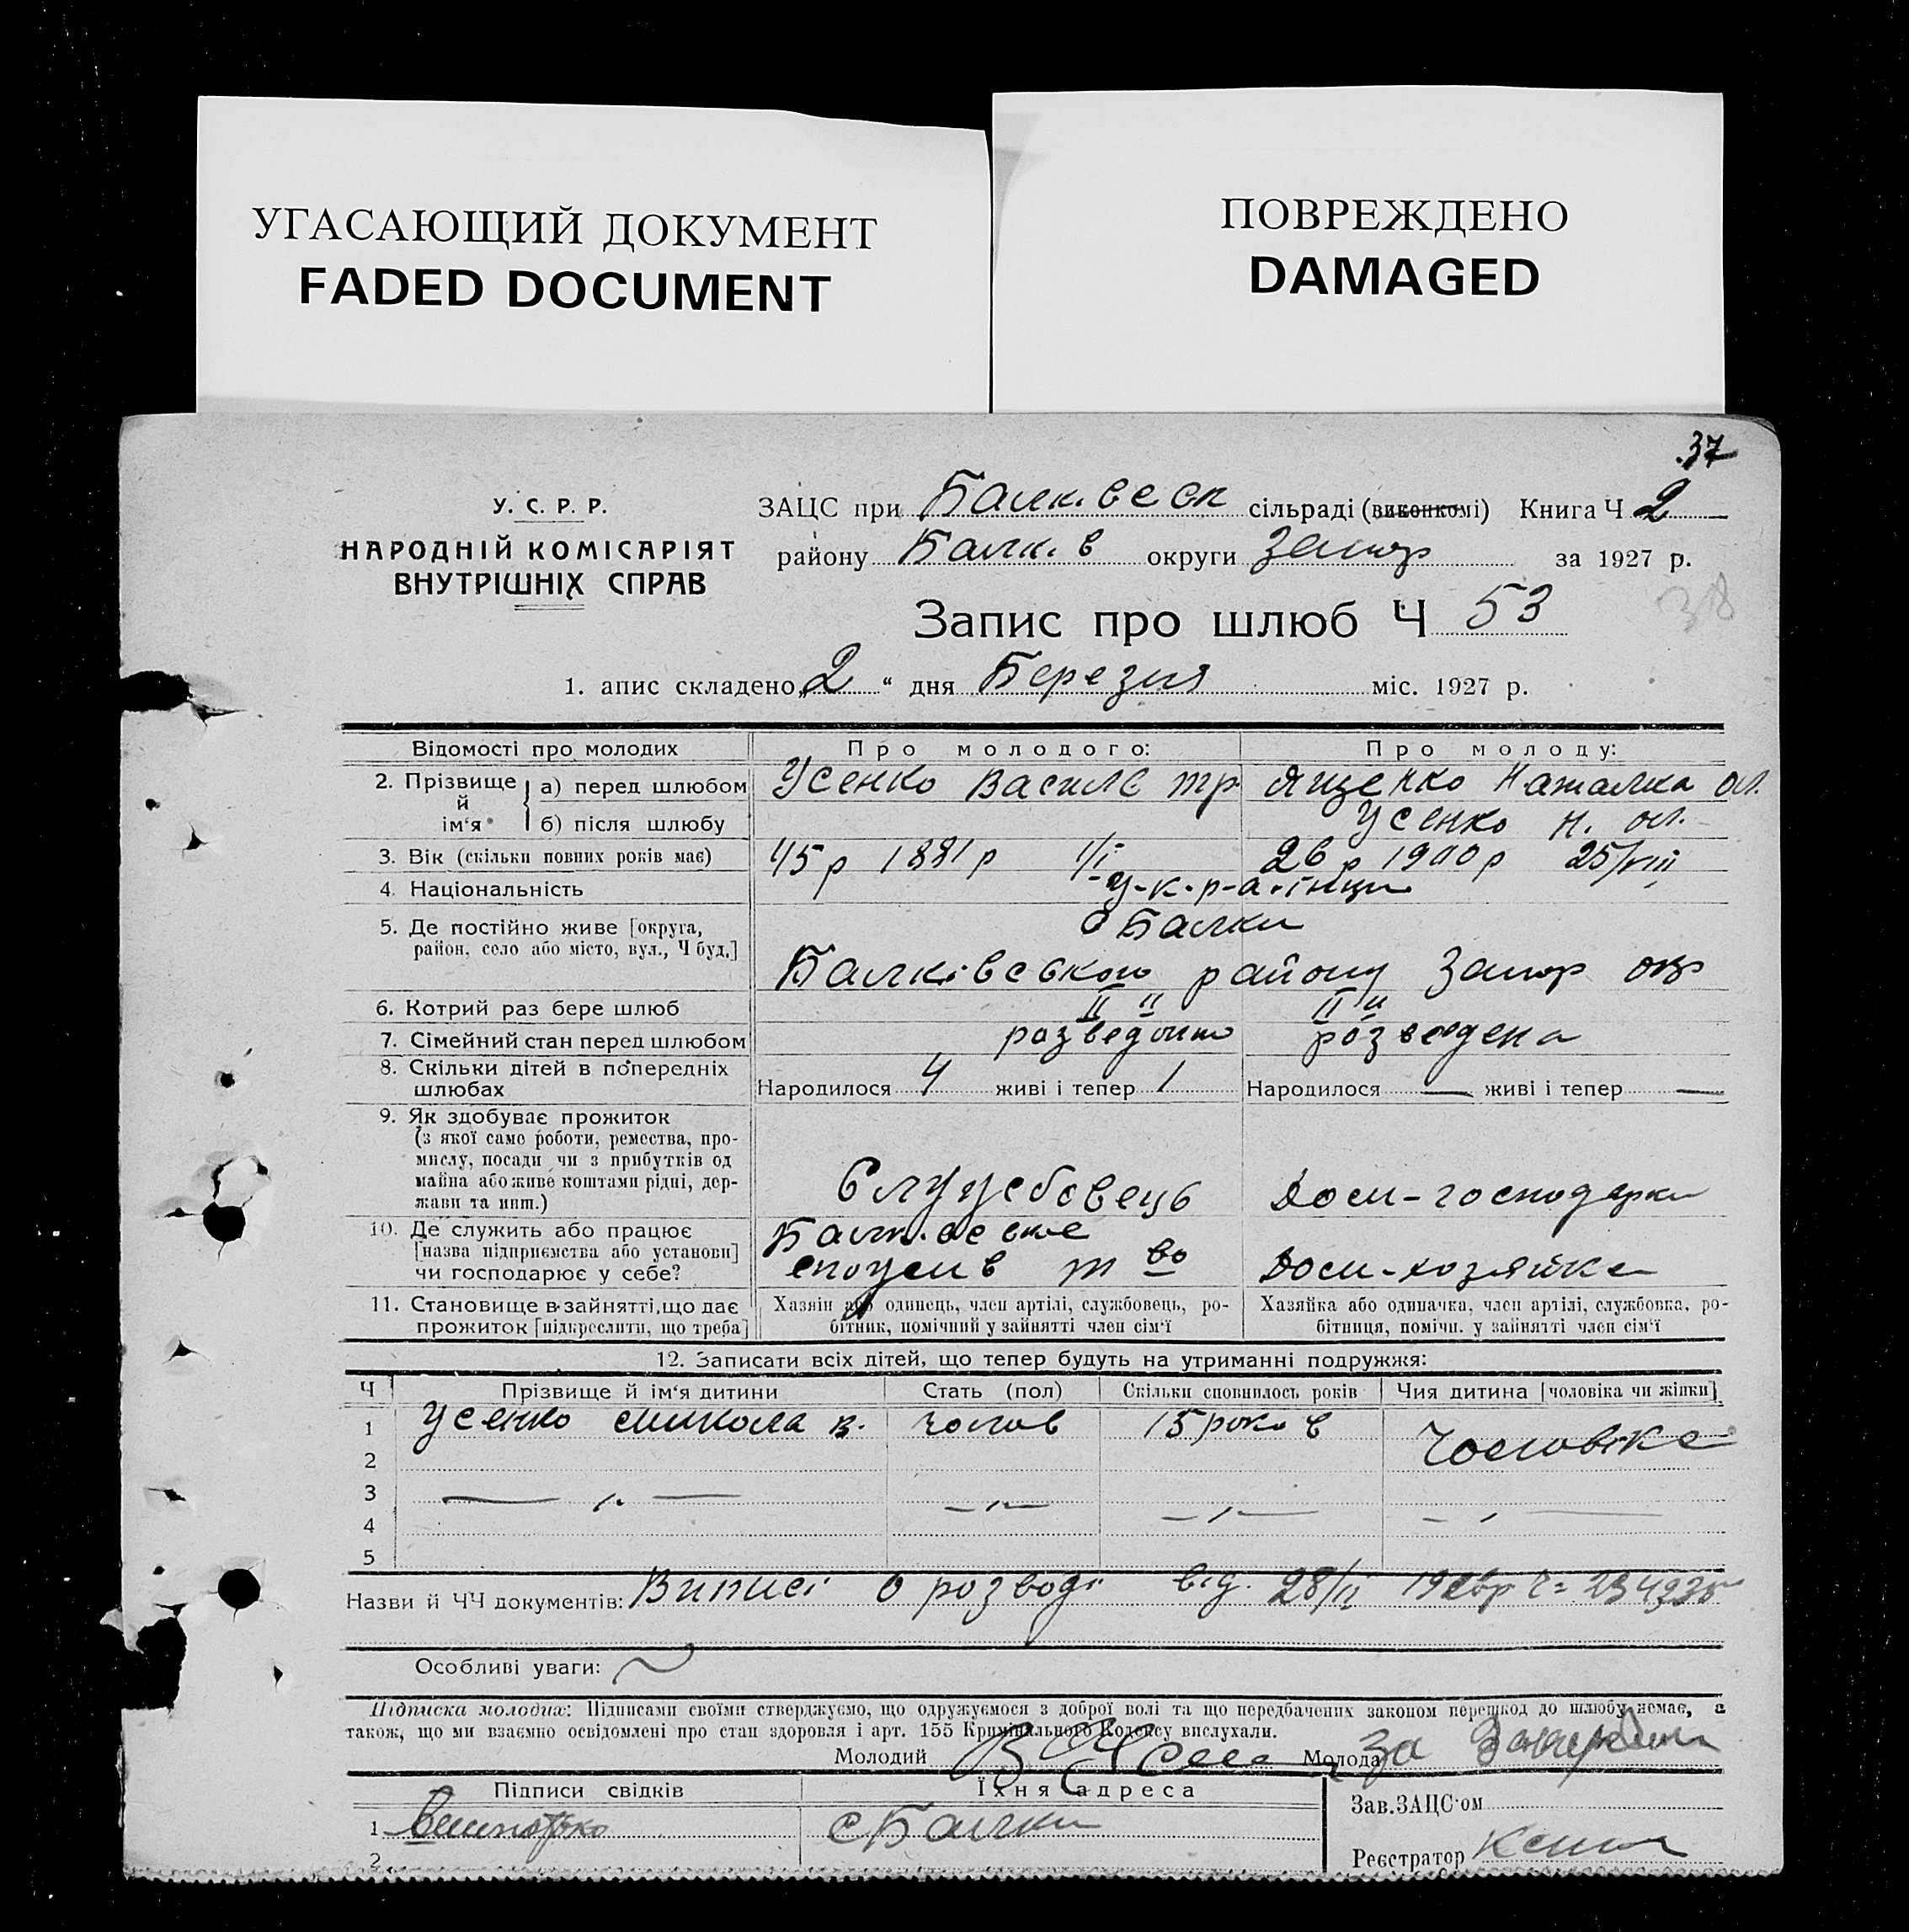 УГАСАЮЩИЙ ДОКУМЕНТ
FADED DOCUMENT
ПОВРЕЖДЕНО
DAMAGED
37
У. С. Р. Р.
НАРОДНІЙ КОМІСАРІЯТ
ВНУТРІШНІХ СПРАВ
ЗАЦС при сільраді (виконкомі) Книга Ч 2
району Балк. в округи Запор за 1927 р.
38
Запис про шлюб Ч 53
1. апис складено „2“ дня Березня міс. 1927 р.
Відомості про молодих Про молодого: Про молоду:
2. Прізвище й ім‘я а) перед шлюбом Усенко Василь тр Ященко Наталка ол.
б) після шлюбу Усенко Н. ол.
3. Вік (скільки повних років має) 45 р 1881 р 1/I 26 р 1900 р 25/VIII
4. Національність У-к-р-а-їнци
5. Де постійно живе [округа, с Балки
район, село або місто, вул., Ч буд.] Балківського району Запор окр
6. Котрий раз бере шлюб II " II "
7. Сімейний стан перед шлюбом розведена
8. Скільки дітей в попередніх
шлюбах Народилося 4 живі і тепер 1 Народилося — живі і тепер —
9. Як здобуває прожиток
(з якої саме роботи, ремества, про-
мислу, посади чи з прибутків од
майна або живе коштами рідні, дер-
жави та инш.) Службовець Дом-господарка
10. Де служить або працює
[назва підприємства або установи]
чи господарює у себе? т во Дом-хозяйка
11. Становище в зайнятті, що дає Хазяїн або одинець, член артілі, службовець, ро- Хазяйка або одиначка, член артілі, службовка, ро-
прожиток [підкреслити, що треба] бітник, помічний у зайнятті член сім‘ї бітниця, помічн. у зайнятті член сім‘ї
12. Записати всіх дітей, що тепер будуть на утриманні подружжя:
Ч Прізвище й ім‘я дитини Стать (пол) Скільки сповнилось років Чия дитина [чоловіка чи жінки]
1 Усенко Микола В. чолов 15 років Чоловіка
2
3
4
5
Назви й ЧЧ документів: Виписі о розводі від. 28/II
Особливі уваги:
Підписка молодих: Підписами своїми стверджуємо, що одружуємося з доброї волі та що передбачених законом перешкод до шлюбу немає, а
також, що ми взаємно освідомлені про стан здоровля і арт. 155 Кримінального Кодексу вислухали.
Молодий Молода За
Підписи свідків Їхня адреса
Зав.ЗАЦС‘ом
1 с Балки
Реєстратор
2